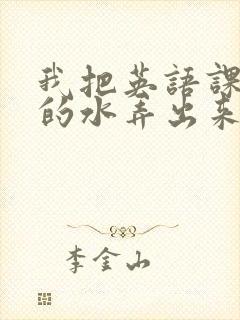 我把英語課
的水弄出来
李金山